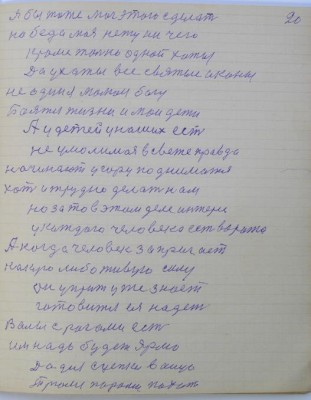 20
А бы тоже мог этого сделат
но беда моя нету ни чего
кроме толко одной хотя
Да ухаты все святые иконы
не одныя молом богу
Багатя жизны и мои дети
А у детей у наших ест
не умолимая в свете правда
начинают угору подниматя
хот и трудно делат нам
но зато в этим деле интери
у каждого человека сотворяно
А когда человек запрегает
какую либо живую силу
он упрат уже знает
готовится ея надет
Валы с рагами ест
им надь будет ярмо
Да для
пахать